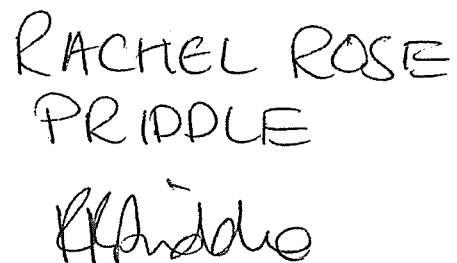 RACHEL ROSE
PRIDDLE
RRPriddle